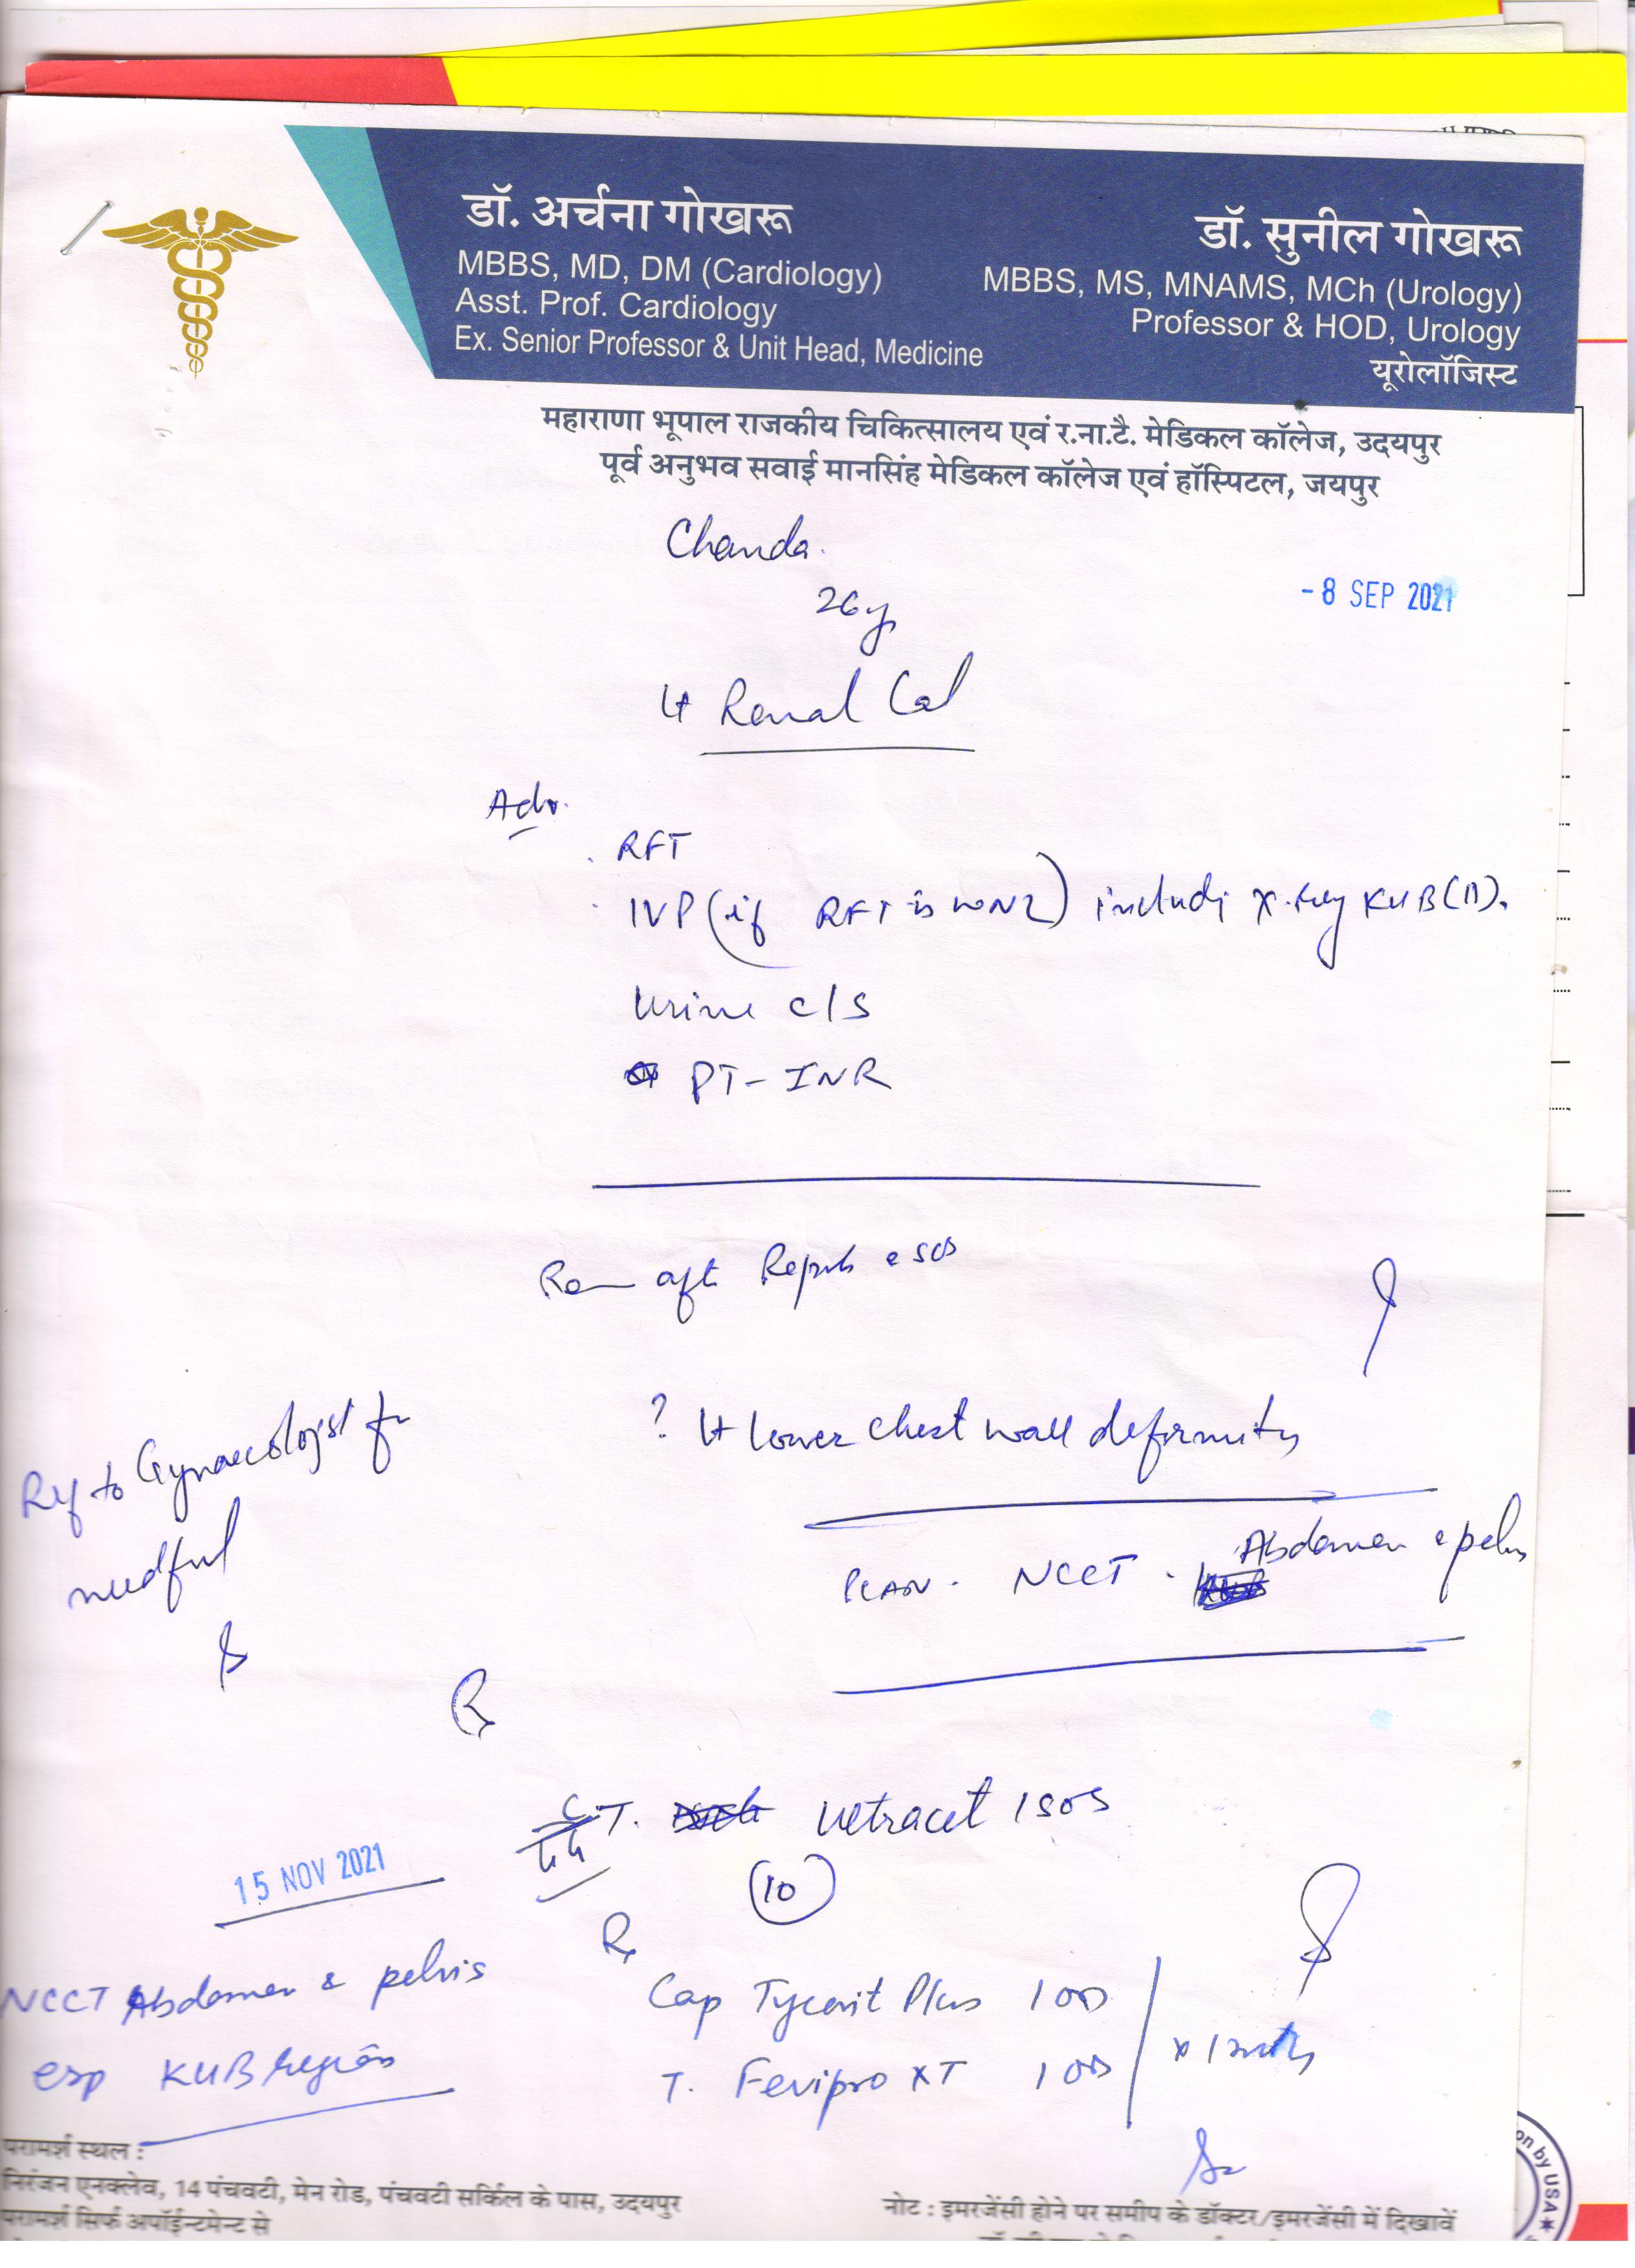 डॉ. अर्चना गोखरू
MBBS, MD, DM (Cardiology)
Asst. Prof. Cardiology
Ex. Senior Professor & Unit Head, Medicine
डॉ. सुनील गोखरू
MBBS, MS, MNAMS, MCh (Urology)
Professor & HOD, Urology
यूरोलॉजिस्ट
महाराणा भूपाल राजकीय चिकित्सालय एवं र.ना.टै. मेडिकल कॉलेज, उदयपुर
पूर्व अनुभव सवाई मानसिंह मेडिकल कॉलेज एवं हॉस्पिटल, जयपुर
Chanda.
26y
- 8 SEP 2021
Lt Renal Cal
Adv.
RFT
IVP (if RFT is WNL) includi X-ray KUB (B).
Urine c/s
PT-INR
Rev aft Reports SOS
Ref to Gynaecologist for
needful
? Lt lower chest wall deformity
PLAN. NCCT. Abdomen & pelvis
Rx
T. Ultracet 1 SOS
(10)
15 NOV 2021
NCCT Abdomen & pelvis
esp KUB region
Rx
Cap Tycovit Plus 1 OD
T. Fevipro XT 1 OD
परामर्श स्थल :
निरंजन एनक्लेव, 14 पंचवटी, मेन रोड, पंचवटी सर्किल के पास, उदयपुर
परामर्श सिर्फ अपॉईन्टमेन्ट से
नोट : इमरजेंसी होने पर समीप के डॉक्टर/इमरजेंसी में दिखावें
on by USA